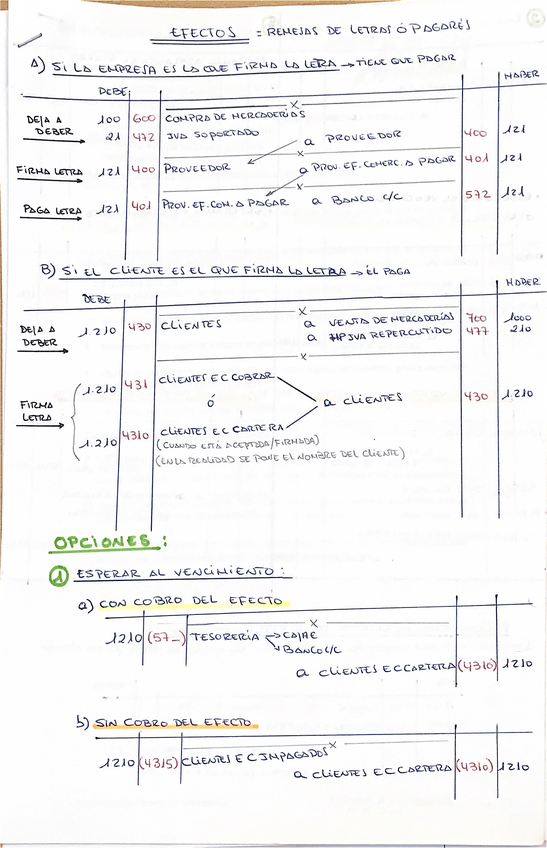 EFECTOS = REMESAS DE LETRAS Ó PAGARÉS
A) SI LA EMPRESA ES LA QUE FIRMA LA LETRA → TIENE QUE PAGAR
DEBE HABER
DEJA A DEBER 100 600 COMPRA DE MERCADERÍAS
21 472 IVA SOPORTADO
a PROVEEDOR 400 121
FIRMA LETRA 121 400 PROVEEDOR a PROV. EF. COMERC. A PAGAR 401 121
PAGA LETRA 121 401 PROV. EF. COM. A PAGAR a BANCO C/C 572 121
B) SI EL CLIENTE ES EL QUE FIRMA LA LETRA → ÉL PAGA
DEBE HABER
DEJA A DEBER 1.210 430 CLIENTES a VENTA DE MERCADERÍAS 700 1000
a HP IVA REPERCUTIDO 477 210
1.210 431 CLIENTES E C COBRAR
FIRMA LETRA Ó a CLIENTES 430 1.210
1.210 4310 CLIENTES E C CARTERA
(CUANDO ESTÁ ACEPTADA/FIRMADA)
(EN LA REALIDAD SE PONE EL NOMBRE DEL CLIENTE)
OPCIONES:
1 ESPERAR AL VENCIMIENTO:
a) CON COBRO DEL EFECTO
1210 (57_) TESORERÍA → CAJA €
→ BANCO C/C
a CLIENTES E C CARTERA (4310) 1210
b) SIN COBRO DEL EFECTO
1210 (4315) CLIENTES E C IMPAGADOS
a CLIENTES E C CARTERA (4310) 1210